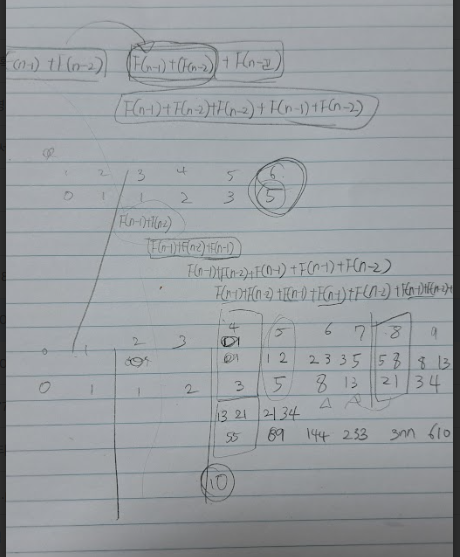 F(n-1) + F(n-2) F(n-1) + F(n-2) + F(n-
F(n-1)+F(n-2)+F(n-2)+F(n-1)+F(n-2)
1 2 3 4 5 6
0 1 1 2 3 5
F(n-1)+F(n-2)
F(n-1)+F(n-2)+F(n-1)
F(n-1)+F(n-2)+F(n-1)+F(n-1)+F(n-2)
F(n-1)+F(n-2)+F(n-1)+F(n-1)+F(n-2)+F(n-1)+F(n-2)+
0 1 2 3 4 5 6 7 8 9
1 2 2 3 3 5 5 8 8 13
0 1 1 2 3 5 8 13 21 34
13 21 21 34
55 89 144 233 3nn 610
10